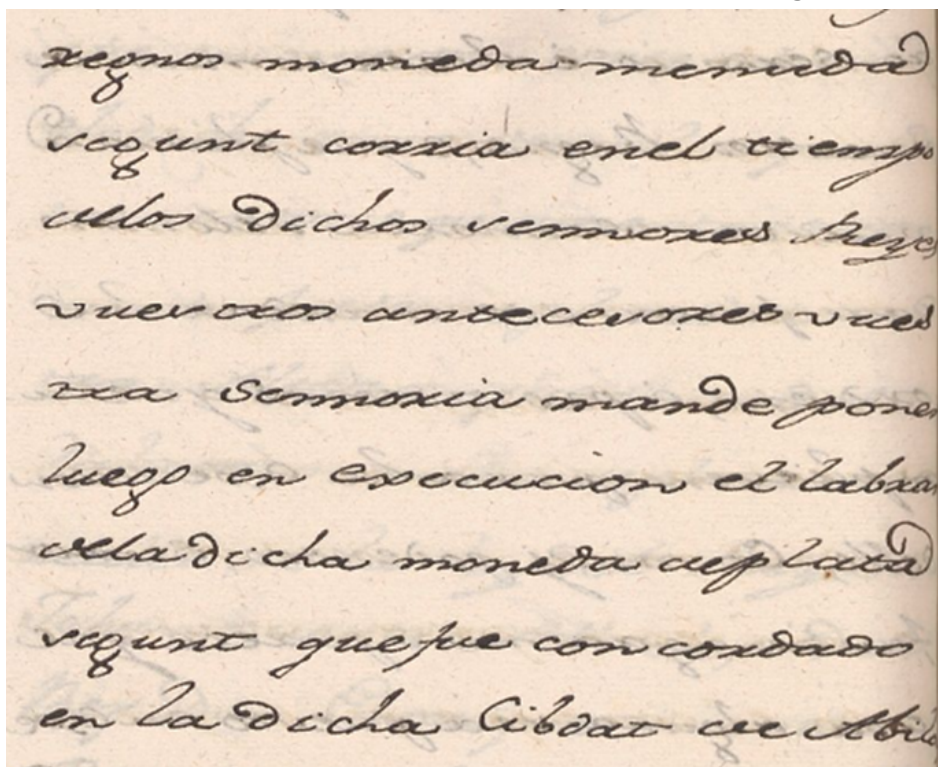 regnos moneda menuda
segunt corria enel tiempo
delos dichos sennores Reyes
vuestros antecesores vues
tra Sennoria mande poner
luego en execucion el labrar
dela dicha moneda deplata
segunt que fue concordado
en la dicha Cibdat de Abila